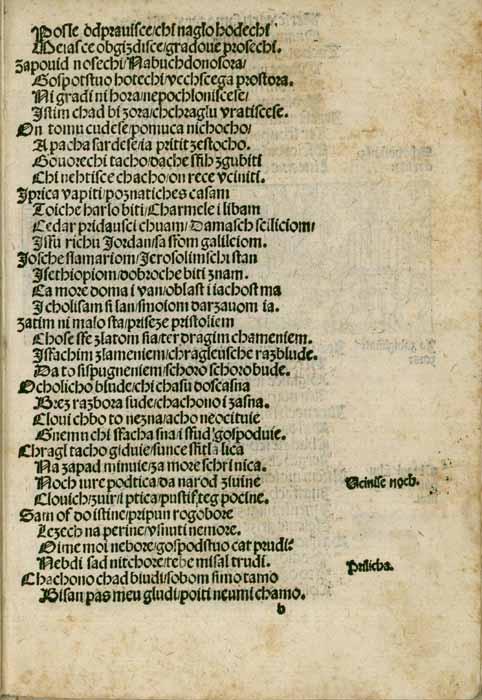 Posle odpravisce/chi naglo hodechi
Beiasce obgizdisce/gradove prosechi.
Zapovid nosechi/Nabuchdonosora/
Gospotstvo hotechi/vechscega prostora.
Ni gradi ni hora/nepochlonisce se/
Istim chad bi zora/chchraglu vratiscese.
On tomu cudese/pomuca nichocho/
A pacha sardese/ia pritit zestocho.
Govorechi tacho/dache sfih zgubiti
Chi nehtisce chacho/on rece vciniti.
Iprica vapiti/poznatiches casam
Toiche harlo biti/Charmele i libam
Cedar pridausci chuam/Damasch sciliciom/
Isfu richu Jordan/sa sfom galileiom.
Josche slamariom/Jerosolimschi stan
Isethiopiom/dobroche biti znam.
Ca more doma i van/oblast i iachost ma
Icholisam silan/smoiom darzavom ia.
Zatim ni malo sta/priseze pristoliem
Chose sfe zlatom sia/ter dragim chameniem.
Isfachim zlameniem/chragleusche razblude.
Da to sispugneniem/schoro schoro bude.
Ocholicho blude/chi chasu doscasna
Brez razbora sude/chachono i zasna.
Clovi chbo to nezna/acho neocituie
Gnemu chi sfacha sna i sfud gospoduie.
Chragl tacho giduie/sunce sfitla lica
Na zapad minuie/za more schri nica.
Noch iure podtica/da narod zivine
Clovich/zuir/i ptica/pustif teg pocine.
Sam of do istine/pripun rogobore
Lezech na perine/vsnuti nemore.
Oime moi nebore/gospodstvo cat prudi?
Nebdi sad nitchore/tebe misal trudi.
Chachono chad bludi/sobom simo tamo
Bisan pas meu gludi/poiti neumi chamo.
b
Vcinise noch.
Prilicha.